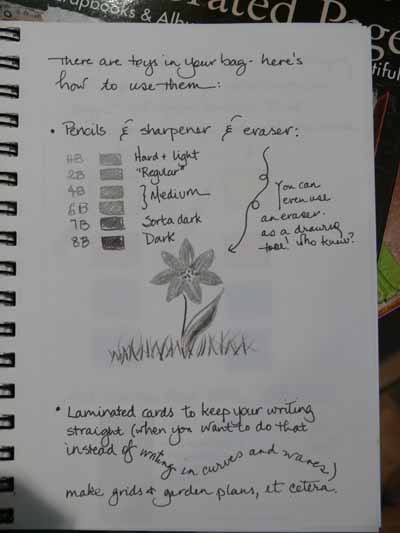 Scrapbooks & Albu
orated Page
tiful
There are toys in your bag - here's
how to use them:
• Pencils & sharpener & eraser:
HB Hard + light
2B "Regular"
4B } Medium
6B
7B Sorta dark
8B Dark
You can
even use
an eraser.
as a drawing
tool! who knew?
• Laminated cards to keep your writing
straight (when you want to do that
instead of writing in curves and waves)
make grids & garden plans, et cetera.